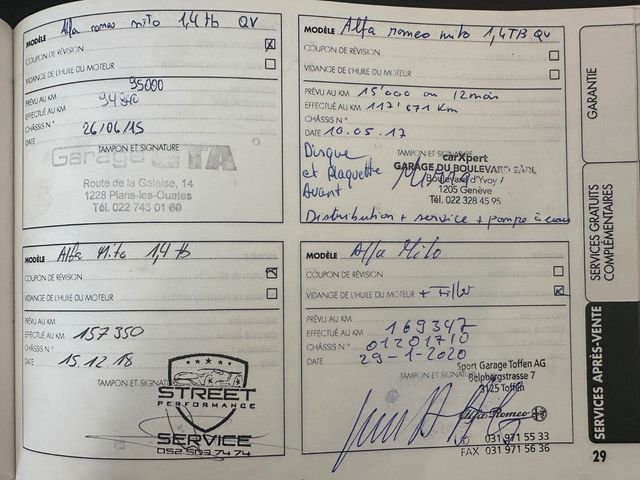 MODÈLE Alfa romeo mito 1,4 tb QV
COUPON DE RÉVISION
VIDANGE DE L'HUILE DU MOTEUR
PRÉVU AU KM 95000
EFFECTUÉ AU KM
CHÂSSIS N°
DATE 26/06/15
TAMPON ET SIGNATURE
Garage GTA
Route de la Galaise, 14
1228 Plans-les-Ouates
Tél. 022 743 01 60
MODÈLE Alfa romeo mito 1,4TB QV
COUPON DE RÉVISION
VIDANGE DE L'HUILE DU MOTEUR
PRÉVU AU KM 15'000 ou 12 mois
EFFECTUÉ AU KM 117'671 Km
CHÂSSIS N°
DATE 10.05.17
TAMPON ET SIGNATURE
Disque
et plaquette
Avant
carXpert
GARAGE DU BOULEVARD SÀRL
Boulevard d'Yvoy 7
1205 Genève
Tél. 022 328 45 95
Distribution + service + pompe à eau
MODÈLE Alfa Mito 1,4 tb
COUPON DE RÉVISION
VIDANGE DE L'HUILE DU MOTEUR
PRÉVU AU KM
EFFECTUÉ AU KM 157350
CHÂSSIS N°
DATE 15.12.18
TAMPON ET SIGNATURE
STREET
PERFORMANCE
SERVICE
052 503 74 74
MODÈLE Alfa Mito
COUPON DE RÉVISION
VIDANGE DE L'HUILE DU MOTEUR + Filter
PRÉVU AU KM
EFFECTUÉ AU KM 169347
CHÂSSIS N° 01201710
DATE 29-1-2020
TAMPON ET SIGNATURE
Sport Garage Toffen AG
Belpbergstrasse 7
3125 Toffen
Alfa Romeo
031 971 55 33
FAX 031 971 56 36
GARANTIE
SERVICES GRATUITS
COMPLÉMENTAIRES
SERVICES APRÈS-VENTE
29